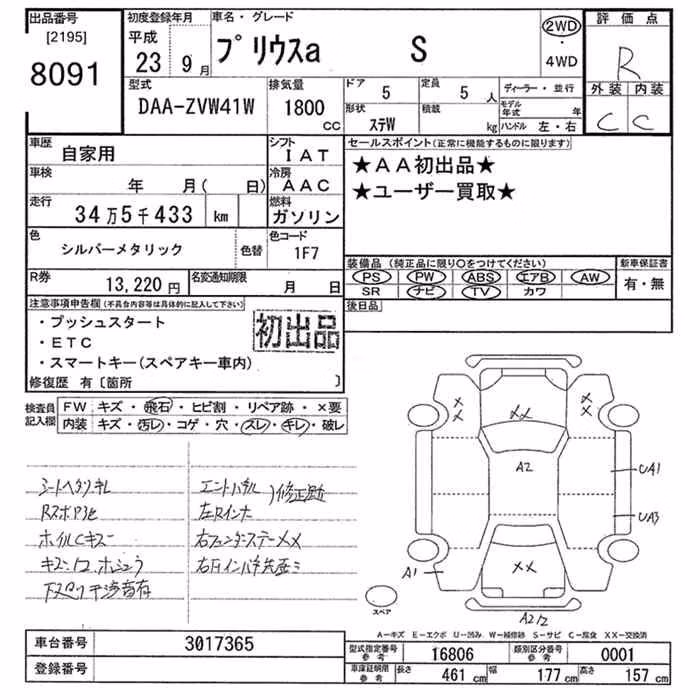 出品番号
[2195]
8091
初度登録年月
平成
23 9月
車名・グレード
プリウスα S
2WD
・
4WD
評価点
R
外装 内装
C C
型式
DAA-ZVW41W
排気量
1800
CC
ドア
5
定員
5 人
形状
ステW
積載
kg
ディーラー・並行
モデル年式 年
ハンドル 左・右
車歴
自家用
シフト
IAT
車検
年 月( 日)
冷房
AAC
走行
34万5千433 km
燃料
ガソリン
色
シルバーメタリック
色替
色コード
1F7
R券
13,220円
名変通知期限
月 日
セールスポイント(正常に機能するものに限ります)
★AA初出品★
★ユーザー買取★
装備品(純正品に限り○をつけてください)
PS PW ABS エアB AW
SR ナビ TV カワ
新車保証書
有・無
後日品
注意事項申告欄(不具合内容等は具体的に記入して下さい)
・プッシュスタート
・ETC
・スマートキー(スペアキー車内)
初出品
修復歴 有〔箇所 〕
検査員記入欄
FW キズ・飛石・ヒビ割・リペア跡・×要
内装 キズ・汚レ・コゲ・穴・スレ・キレ・破レ
シートヘタリキレ
ホイルCキズ
修正跡
左Rインナ
XX
A2
UA1
UA3
A1
XX
A2
スペア
A-キズ E-エクボ U-凹み W-補修跡 S-サビ C-腐食 XX-交換済
車台番号
3017365
登録番号
型式指定番号
参考
16806
類別区分番号
参考
0001
車庫証明用
参考
長さ 461 cm
幅 177 cm
高さ 157 cm